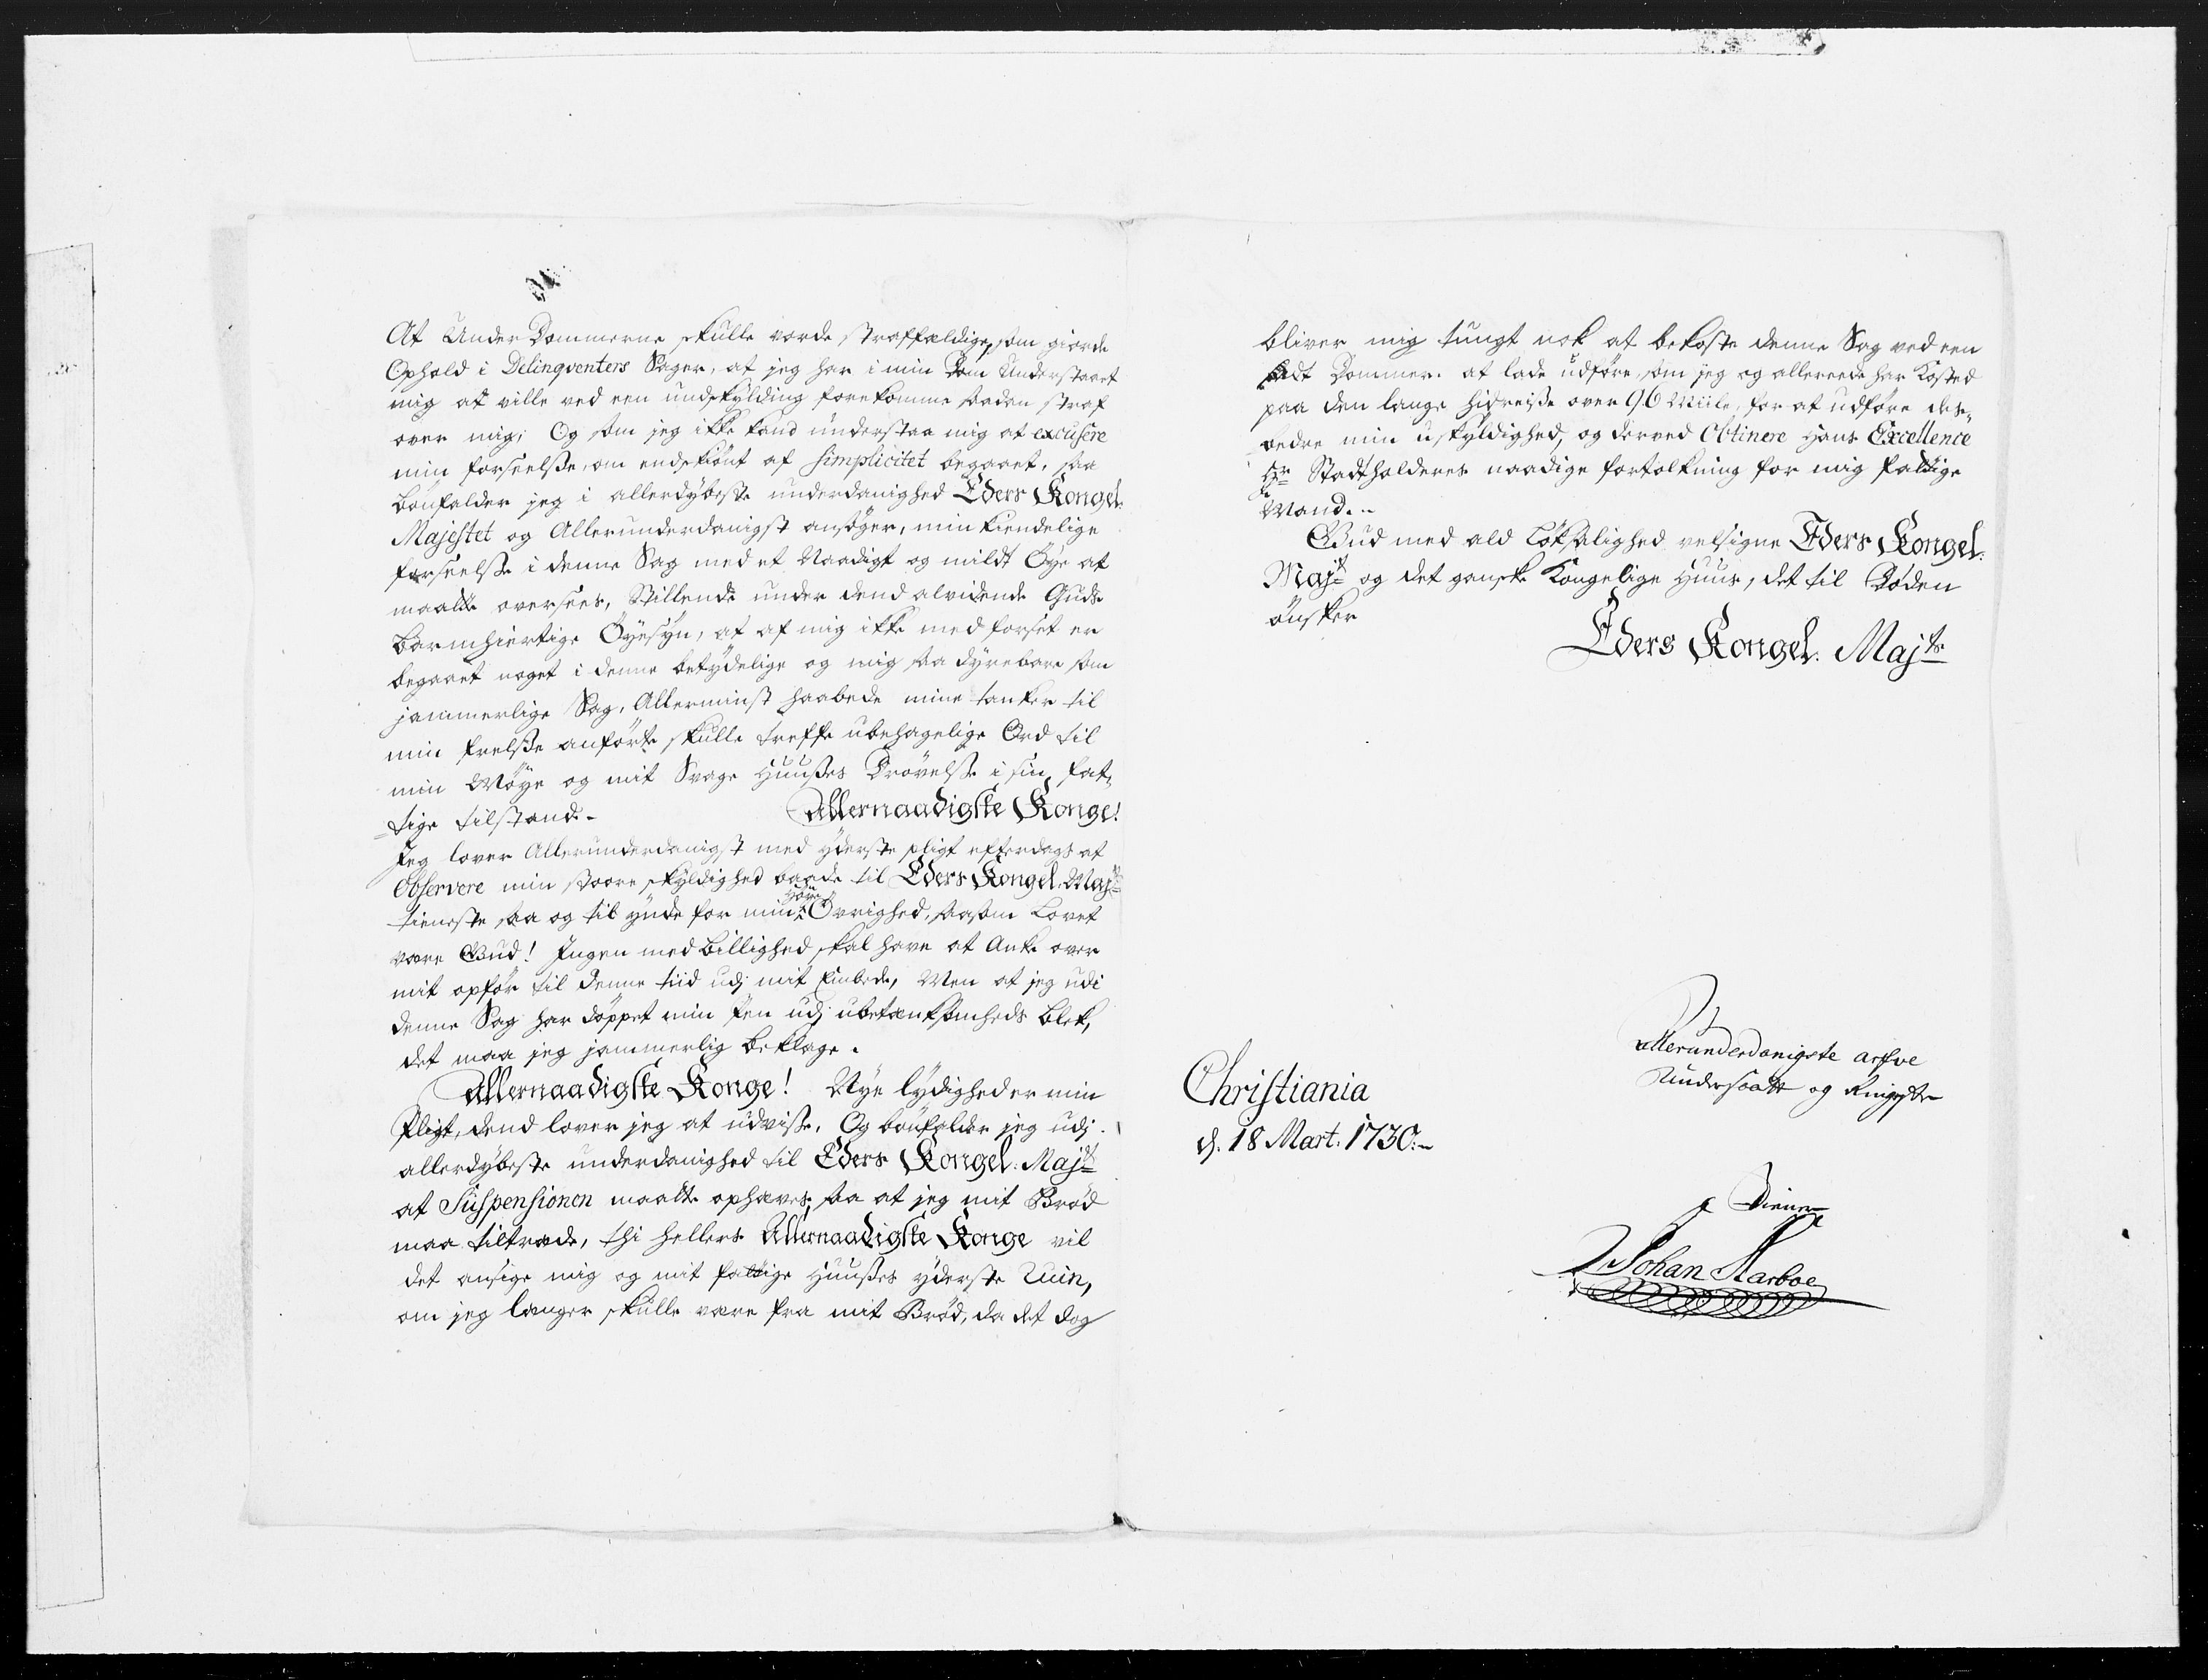 At UnderDommerne skulle vorde straffældige, som giorde
Ophold i Delinqventers Sager, at jeg har i min Dom Understaaet
mig at ville ved een undskylding forekomme saadan straf
over mig; Og som jeg ikke kand understaa mig at excusere
min forseelsse, om endskiönt af simplicitet begaaet, saa
bönfalder jeg i allerdybeste underdanighed Eders Kongel.
Majestet og Allerunderdanigst ansöger, min kiendelige
forseelsse i denne Sag med et Naadigt og mildt Öye at
maatte oversees, Stillende under dend alvidende Guds
barmhiertige Öyesyn, at af mig ikke med forset er
begaaet noget i denne betydelige og mig saa dyrebare som
jammerlige Sag, Allerminst haabede mine tanker til
min frelsse anförte skulle treffe ubehagelige Ord til
min Möye og mit Svage Huusses Drövelsse i sin fat¬
tige tilstand.  Allernaadigste Konge!
Jeg lover Allerunderdanigst med yderste pligt efterdags at
Observere min stoore skyldighed baade til Eders Kongel. Majts
tieneste saa og til ynde for min höye Övrighed, saasom Lovet
være Gud! Ingen med billighed skal have at Anke over
mit opför til denne tiid udj mit Embede, Men at jeg udi
denne Sag har döppet min Pen udj ubetænksomheds blek,
det maa jeg jammerlig beklage.
Allernaadigste Konge! Nye lydighed er min
Pligt, dend lover jeg at udvisse, Og bönfalder jeg udj
allerdybeste underdanighed til Eders Kongel. Majt
at Suspensionen maatte ophæves, saa at jeg mit Bröd
maa tiltræde, thi hellers Allernaadigste Konge vil
det ansige mig og mit fattige Huusses yderste Ruin,
om jeg længer skulle være fra mit Bröd, da det dog
bliver mig tungt nok at bekoste denne Sag ved een
Sadt Dommer. at lade udföre, som jeg og allereede har Kosted
paa den lange hidreisse over 96 Miile, for at udföre des¬
bedre min uskyldighed, og derved Obtinere Hans Excellence
Hr Stadtholderes naadige fortolkning for mig fattige
Mand..
Gud med ald Löksalighed velsigne Eders Kongel.
Majt og det ganske Kongelige Huus, det til Döden
önsker
Eders Kongel. Majts
Allerunderdanigste arfve
Undersaatt og Ringeste
Tiener
Johan Aarboe
Christiania
d. 18 Mart. 1730.